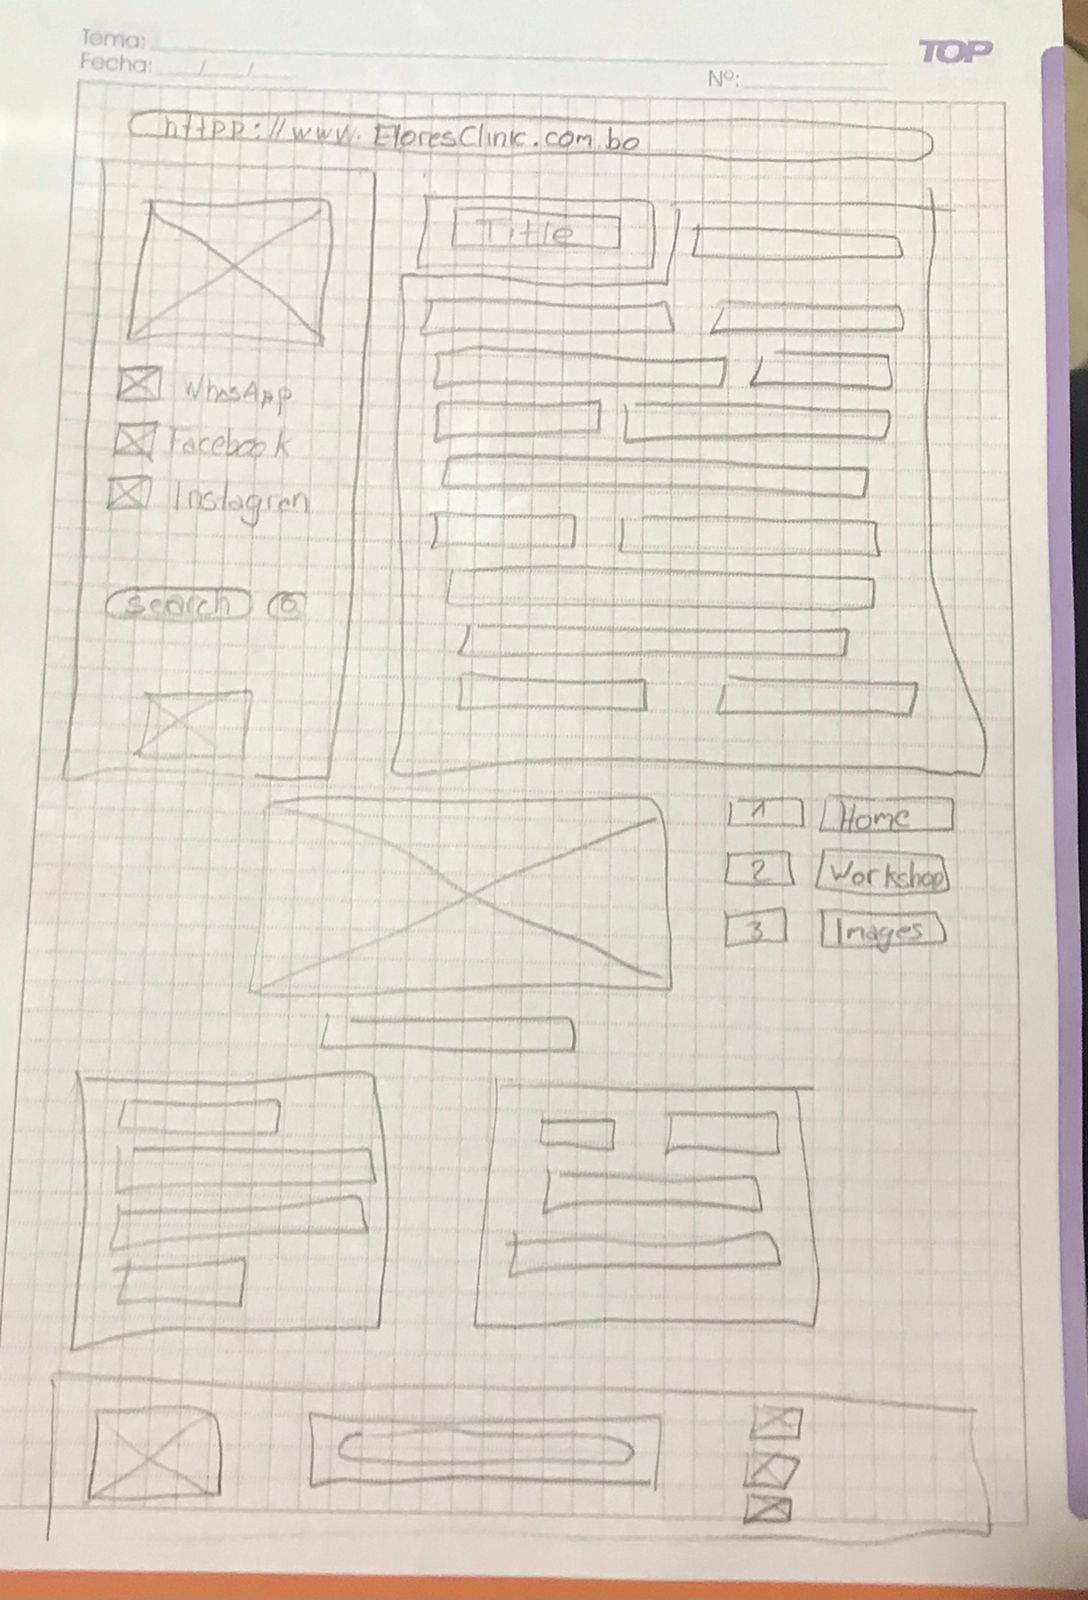 Tema:
TOP
Fecha: / /
Nº:
httpp://www.FloresClinic.com.bo
Title
WhasApp
Facebook
Instagren
Search
1 Home
2 Workshop
3 Images